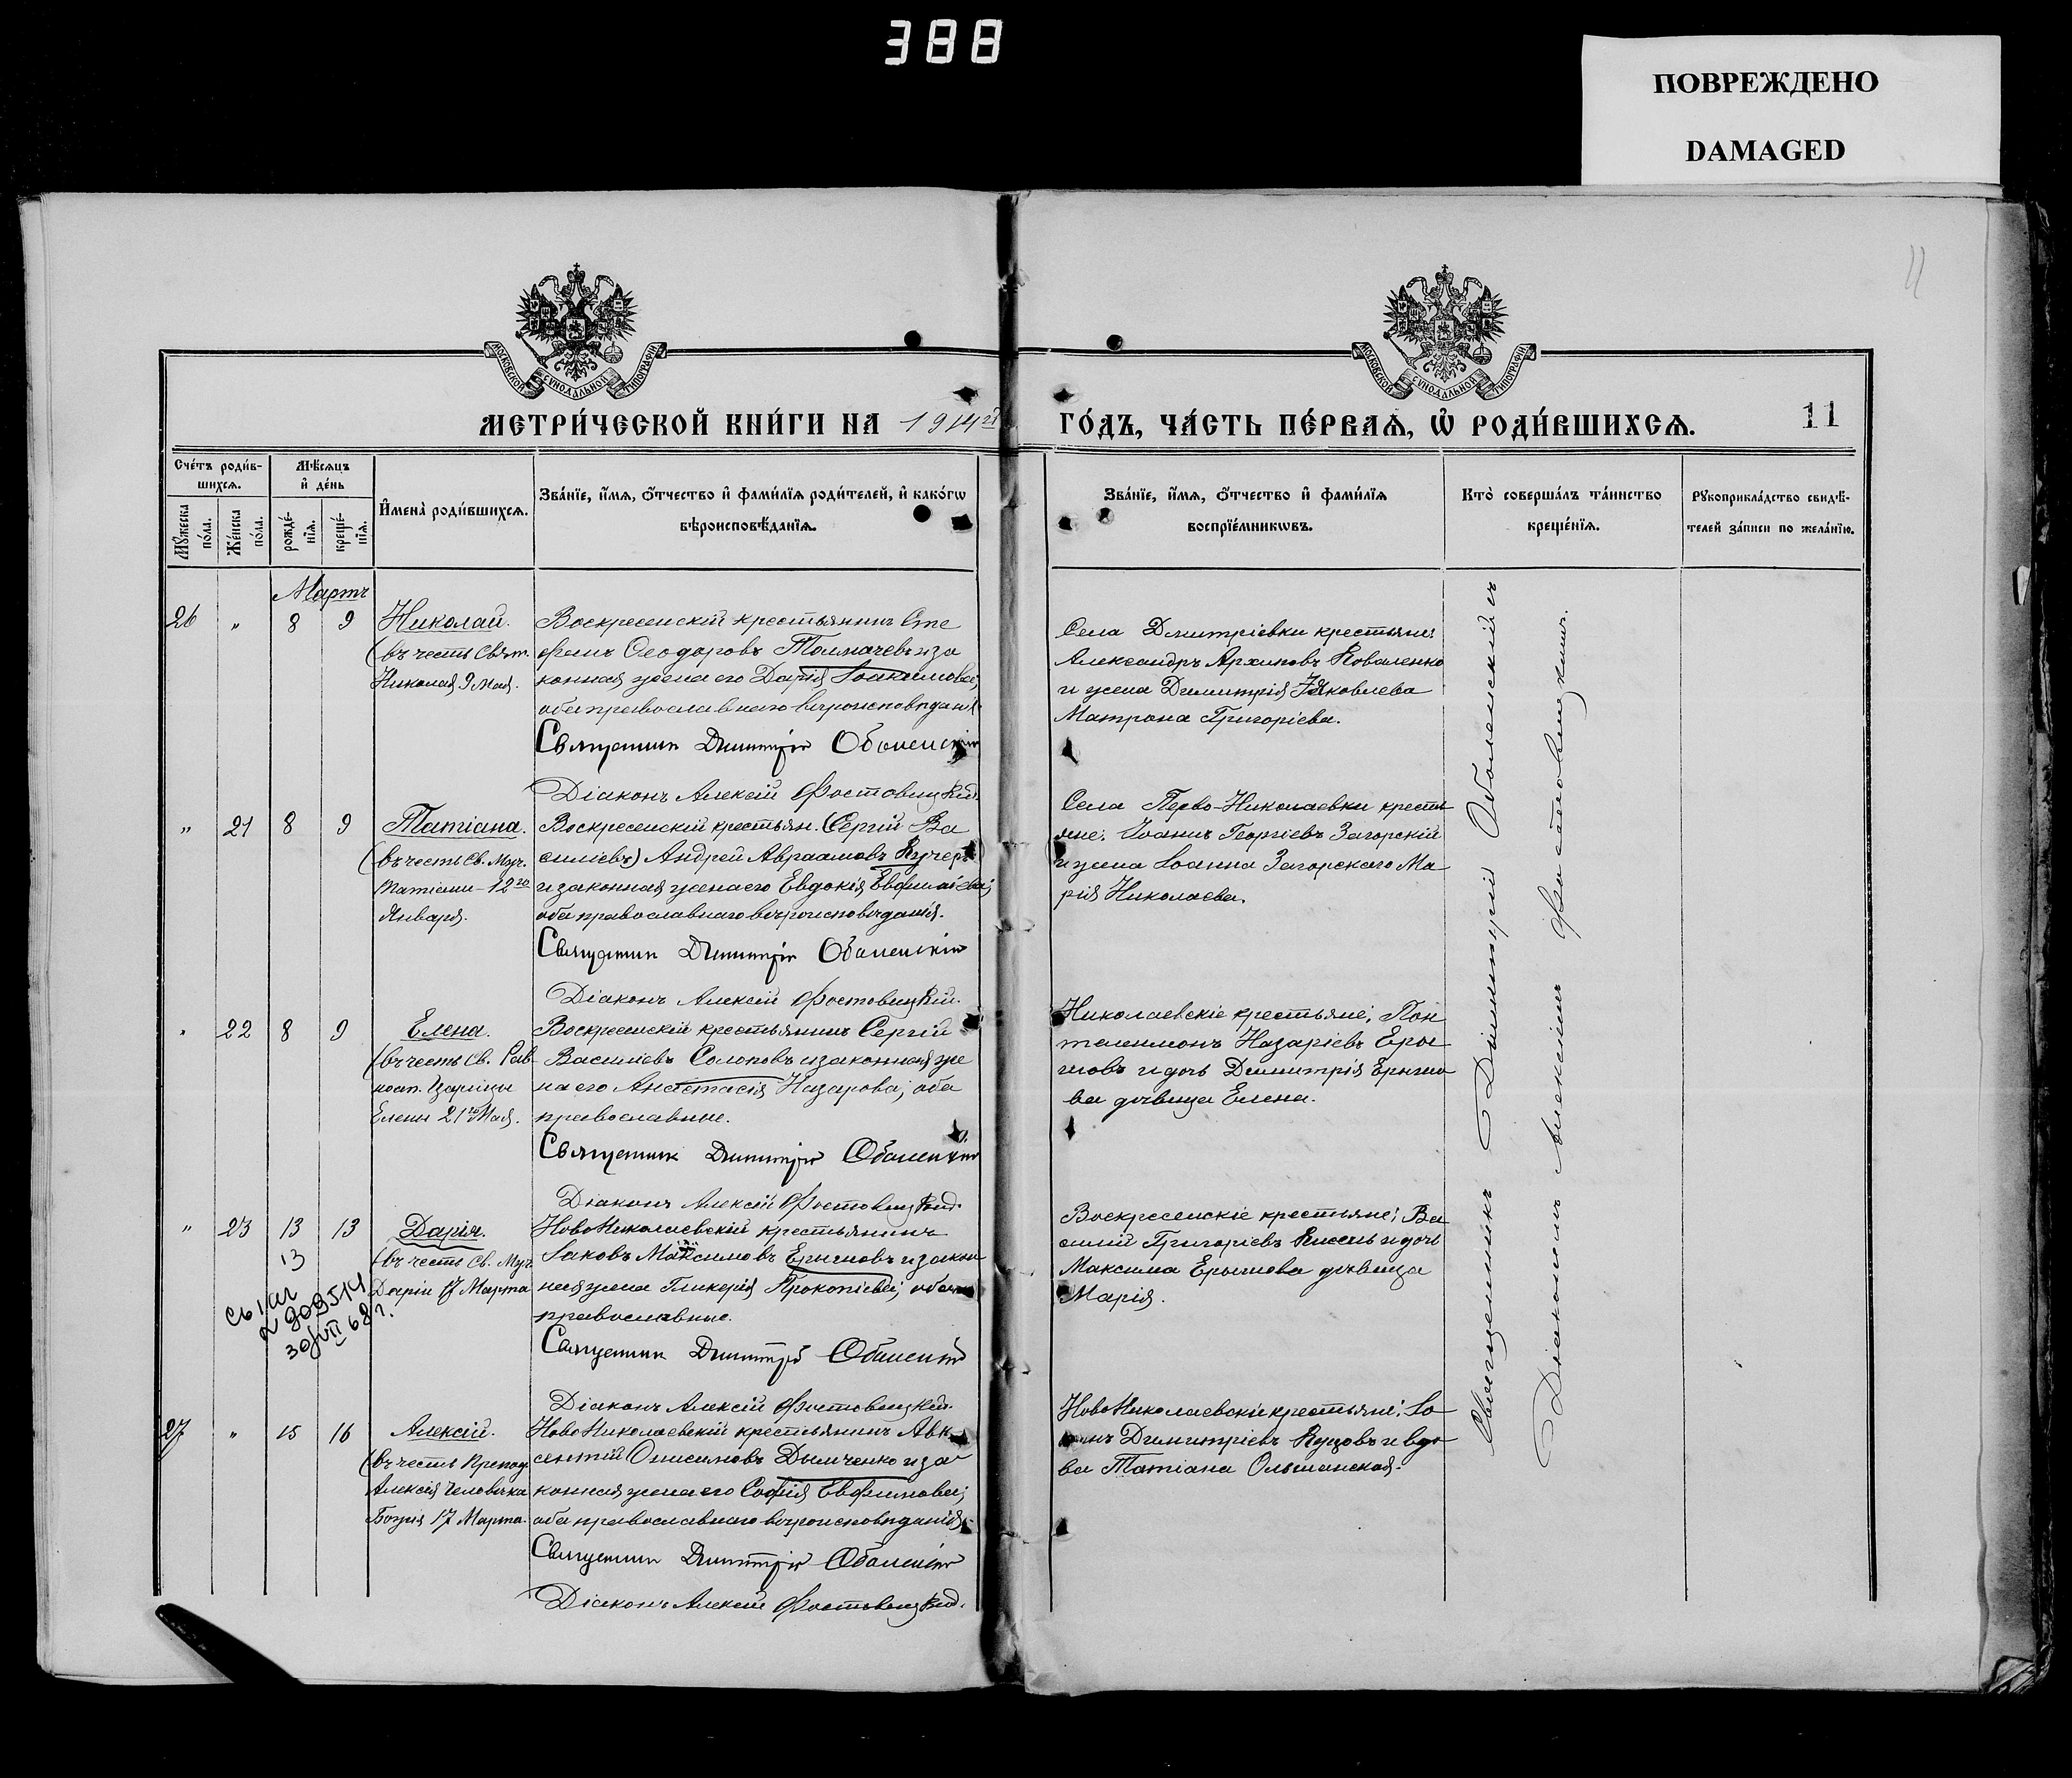 388
ПОВРЕЖДЕНО
DAMAGED
11
МОСКОВСКОЙ СѴНОДАЛЬНОЙ ТИПОГРАФІИ
МОСКОВСКОЙ СѴНОДАЛЬНОЙ ТИПОГРАФІИ
МЕТРИ́ЧЕСКОЙ КНИ́ГИ НА 1914й ГО́ДЪ, ЧА́СТЬ ПЕ́РВАѦ, Ѡ҆ РОДИ́ВШИХСѦ. 11
Сче́тъ роди́в-
шихсѧ.
Мꙋ́жеска по́ла.
Же́нска по́ла.
Мѣ́сѧцъ
и҆ де́нь
рожде́-
нїѧ.
креще́-
нїѧ.
И҆мена̀ роди́вшихсѧ.
Зва́нїе, и҆́мѧ, ѻ҆́тчество и҆ фами́лїѧ роди́телей, и҆ како́гѡ
вѣроисповѣ́данїѧ.
Зва́нїе, и҆́мѧ, ѻ҆́тчество и҆ фами́лїѧ
воспрїе́мникѡвъ.
Кто̀ соверша́лъ та́инство
креще́нїѧ.
Рꙋкоприкла́дство свидѣ́-
телей за́писи по жела́нїю.
Мартъ
26 " 8 9
Николай.
(въ честь Свят.
Николая 9 Мая.
Воскресенскій крестьянинъ Сте
фанъ Ѳеодоровъ Толмачевъ и за
конная жена его Дарія Іоакимова;
оба православнаго вѣроисповѣданія.
Священник Димитрій Оболенскій
Діаконъ Алексій Фостовецкій.
Села Дмитріевки крестьяне:
Александръ Архиповъ Коваленко
и жена Димитрія Яковлева
Матрона Григоріева.
" 21 8 9
Татіана.
(въ честь Св. Муч.
Татіаны - 12го
Января.
Воскресенскій крестьян. (Сергій Ва
силіевъ) Андрей Авраамовъ Кучеръ
и законная жена его Евдокія Евфиміева;
оба православнаго вѣроисповѣданія.
Священник Димитрій Оболенскій
Діаконъ Алексій Фостовецкій.
Села Перво-Николаевки кресть
яне: Іоаннъ Георгіевъ Загорскій
и жена Іоанна Загорскаго Ма
рія Николаева.
" 22 8 9
Елена.
(въ честь Св. Рав
ноап. Царицы
Елены 21го Мая.
Воскресенскій крестьянинъ Сергій
Василіевъ Солоповъ и законная же
на его Анастасія Назарова; оба
православные.
Священник Димитрій Оболенскій
Діаконъ Алексій Фостовецкій.
Николаевскіе крестьяне: Пан
телеимонъ Назаріевъ Еры
шовъ и дочь Димитрія Ерышо
ва дѣвица Елена.
" 23 13 13
13
Дарія.
(въ честь Св. Муч.
Даріи 17 Марта
30/VII 68 г.
НовоНиколаевскій крестьянинъ
Іаковъ Максимовъ Ерышовъ и закон
ная жена Гликерія Прокопіева; оба
православные.
Священник Димитрій Оболенскій
Діаконъ Алексій Фостовецкій.
Воскресенскіе крестьяне: Ва
силій Григоріевъ Кисель и дочь
Максима Ерышова дѣвица
Марія.
27 " 15 16
Алексій.
(въ честь Препод.
Алексія Человѣка
Божія 17 Марта.
НовоНиколаевскій крестьянинъ Авк
сентій Онисимовъ Дымченко и за
конная жена его Софія Евфимова;
оба православнаго вѣроисповѣданія.
Священник Димитрій Оболенскій
Діаконъ Алексій Фостовецкій.
НовоНиколаевскіе крестьяне: Іо
аннъ Димитріевъ Куцовъ и вдо
ва Татіана Ольшанская.
Священникъ Димитрій Оболенскій съ
Діакономъ Алексіемъ Фостовецкимъ.